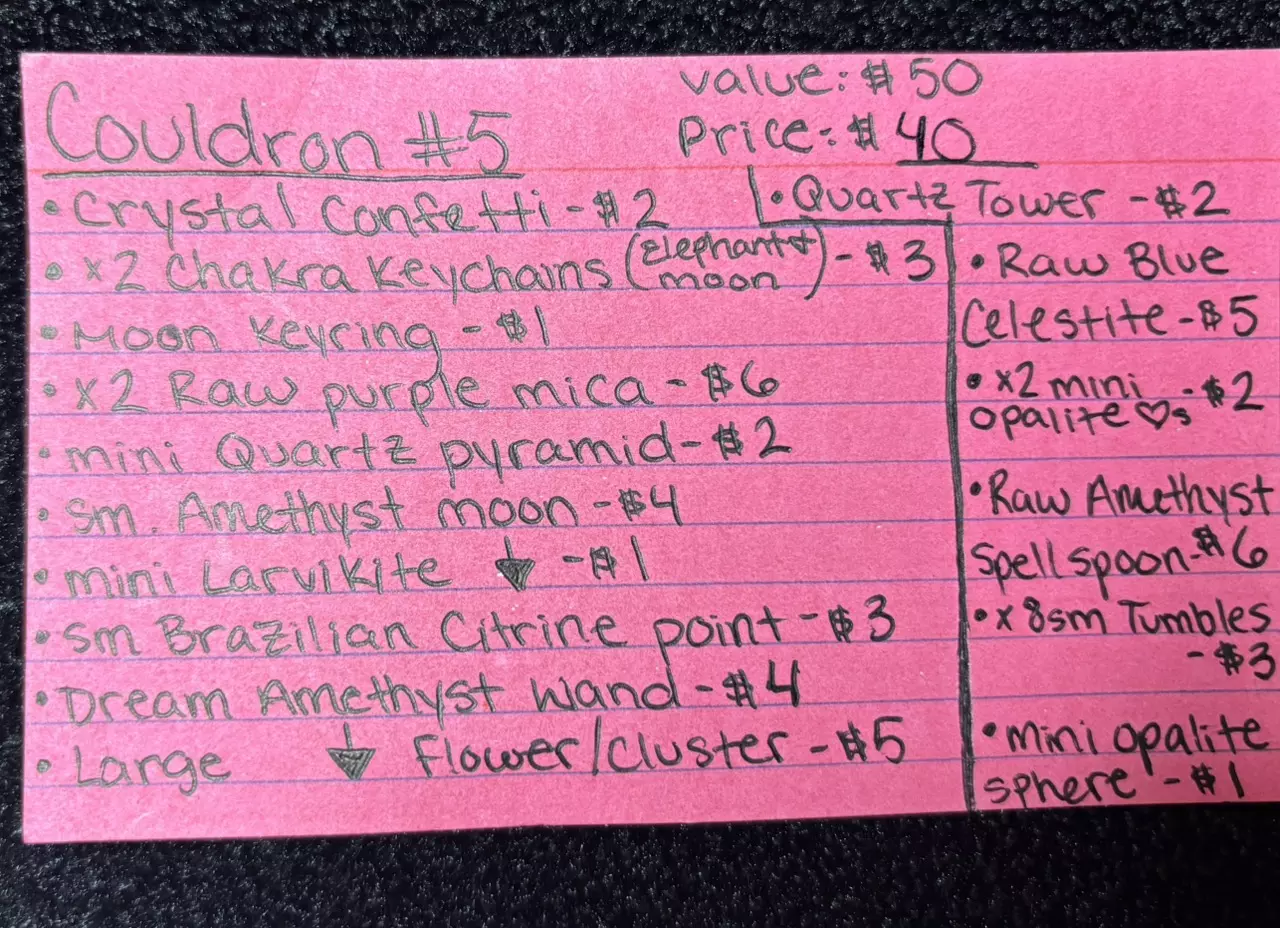 Couldron #5
value: $50
Price: $40
• Crystal Confetti - $2
• x2 Chakra Keychains (Elephant + moon) - $3
• Moon Keyring - $1
• x2 Raw purple mica - $6
• mini Quartz pyramid - $2
• sm. Amethyst moon - $4
• mini Larvikite ↓ - $1
• sm Brazilian Citrine point - $3
• Dream Amethyst Wand - $4
• Large ↓ flower/cluster - $5
• Quartz Tower - $2
• Raw Blue
Celestite - $5
• x2 mini
opalite ♡s - $2
• Raw Amethyst
Spell spoon - $6
• x 8sm Tumbles
- $3
• mini opalite
sphere - $1